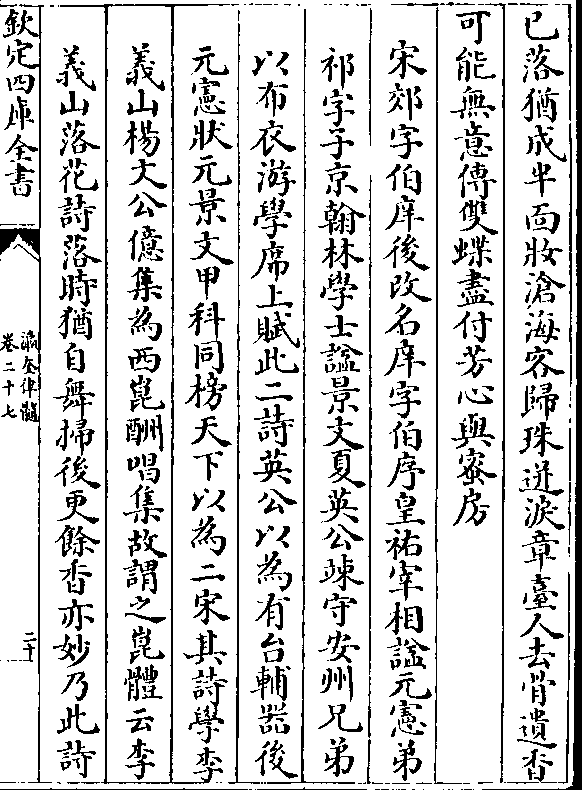 已落猶成半面妝滄海客歸珠迸淚章臺人去骨遺香
可能無意傳雙蝶盡付芳心與蜜房
宋郊字伯庠後改名庠字伯序皇祐宰相諡元憲弟
祁字子京翰林學士諡景文夏英公竦守安州兄弟
以布衣游學席上賦此二詩英公以為有台輔器後
元憲狀元景文甲科同榜天下以為二宋其詩學李
義山楊文公億集為西崑酬唱集故謂之崑體云李
義山落花詩落時猶自舞掃後更餘香亦妙乃此詩
欽定四庫全書
瀛奎律髓
卷二十七
二十